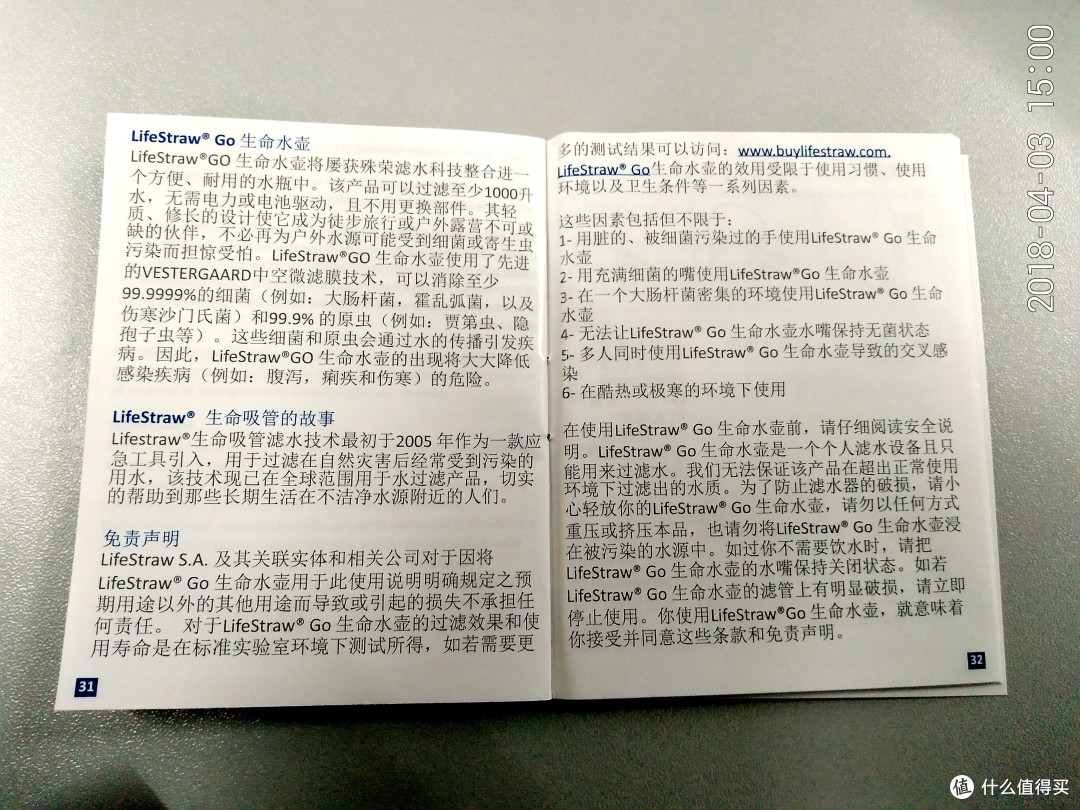 LifeStraw® Go 生命水壶
LifeStraw®GO 生命水壶将屡获殊荣滤水科技整合进一
个方便、耐用的水瓶中。该产品可以过滤至少1000升
水，无需电力或电池驱动，且不用更换部件。其轻
质、修长的设计使它成为徒步旅行或户外露营不可或
缺的伙伴，不必再为户外水源可能受到细菌或寄生虫
污染而担惊受怕。LifeStraw®GO 生命水壶使用了先进
的VESTERGAARD中空微滤膜技术，可以消除至少
99.9999%的细菌（例如：大肠杆菌，霍乱弧菌，以及
伤寒沙门氏菌）和99.9% 的原虫（例如：贾第虫、隐
孢子虫等）。这些细菌和原虫会通过水的传播引发疾
病。因此，LifeStraw®GO 生命水壶的出现将大大降低
感染疾病（例如：腹泻，痢疾和伤寒）的危险。
LifeStraw® 生命吸管的故事
Lifestraw®生命吸管滤水技术最初于2005 年作为一款应
急工具引入，用于过滤在自然灾害后经常受到污染的
用水，该技术现已在全球范围用于水过滤产品，切实
的帮助到那些长期生活在不洁净水源附近的人们。
免责声明
LifeStraw S.A. 及其关联实体和相关公司对于因将
LifeStraw® Go 生命水壶用于此使用说明明确规定之预
期用途以外的其他用途而导致或引起的损失不承担任
何责任。 对于LifeStraw® Go 生命水壶的过滤效果和使
用寿命是在标准实验室环境下测试所得，如若需要更
31
多的测试结果可以访问：www.buylifestraw.com.
LifeStraw® Go生命水壶的效用受限于使用习惯、使用
环境以及卫生条件等一系列因素。
这些因素包括但不限于：
1- 用脏的、被细菌污染过的手使用LifeStraw® Go 生命
水壶
2- 用充满细菌的嘴使用LifeStraw®Go 生命水壶
3- 在一个大肠杆菌密集的环境使用LifeStraw® Go 生命
水壶
4- 无法让LifeStraw® Go 生命水壶水嘴保持无菌状态
5- 多人同时使用LifeStraw® Go 生命水壶导致的交叉感
染
6- 在酷热或极寒的环境下使用
在使用LifeStraw® Go 生命水壶前，请仔细阅读安全说
明。LifeStraw® Go 生命水壶是一个个人滤水设备且只
能用来过滤水。我们无法保证该产品在超出正常使用
环境下过滤出的水质。为了防止滤水器的破损，请小
心轻放你的LifeStraw® Go 生命水壶，请勿以任何方式
重压或挤压本品，也请勿将LifeStraw® Go 生命水壶浸
在被污染的水源中。如过你不需要饮水时，请把
LifeStraw® Go 生命水壶的水嘴保持关闭状态。如若
LifeStraw® Go 生命水壶的滤管上有明显破损，请立即
停止使用。你使用LifeStraw®Go 生命水壶，就意味着
你接受并同意这些条款和免责声明。
32
2018-04-03 15:00
值 什么值得买